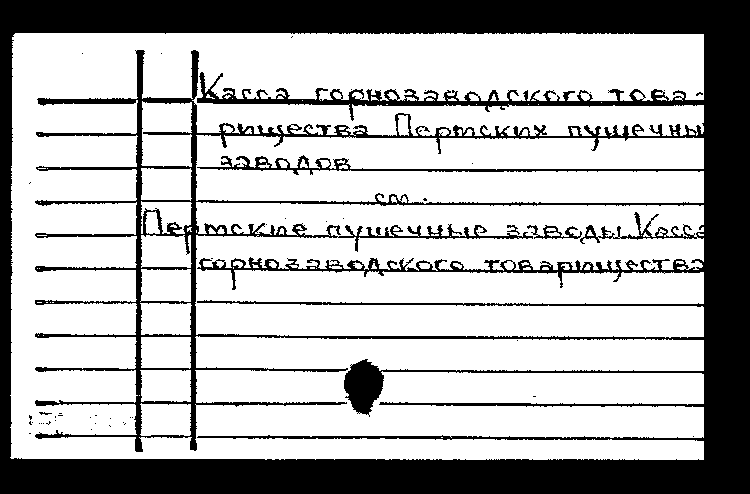 Касса горнозаводского това-
рищества Пермских пушечны
заводов
см.
Пермские пушечные заводы. Касса
горнозаводского товарищества